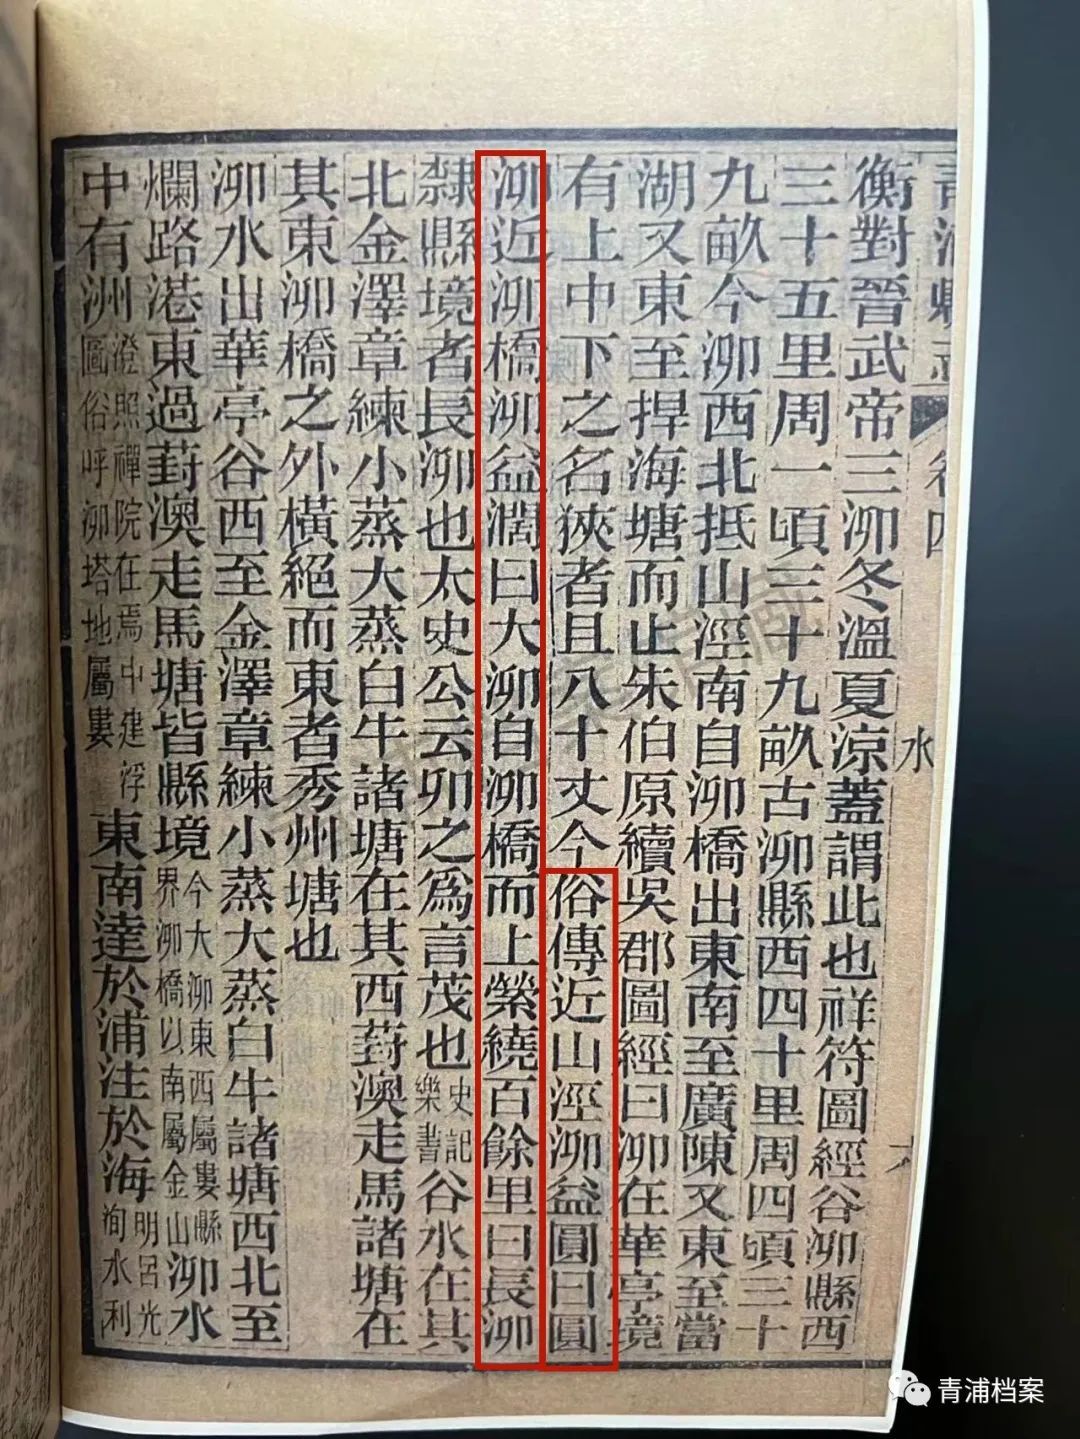 青浦縣志 卷四 水
衡對晉武帝三泖冬溫夏涼蓋謂此也祥符圖經谷泖縣西
三十五里周一頃三十九畝古泖縣西四十里周四頃三十
九畝今泖西北抵山涇南自泖橋出東南至廣陳又東至當
湖又東至捍海塘而止朱伯原續吳郡圖經曰泖在華亭境
有上中下之名狹者且八十丈今俗傳近山涇泖益圓曰圓
泖近泖橋泖益濶曰大泖自泖橋而上縈繞百餘里曰長泖
隸縣境者長泖也太史公云卯之爲言茂也史記樂書谷水在其
北金澤章練小蒸大蒸白牛諸塘在其西葑澳走馬諸塘在
其東泖橋之外橫絕而東者秀州塘也
泖水出華亭谷西至金澤章練小蒸大蒸白牛諸塘西北至
爛路港東過葑澳走馬塘皆縣境今大泖東西屬婁縣界泖橋以南屬金山泖水
中有洲澄照禪院在焉中建浮圖俗呼泖塔地屬婁東南達於浦注於海明呂光洵水利
青浦档案